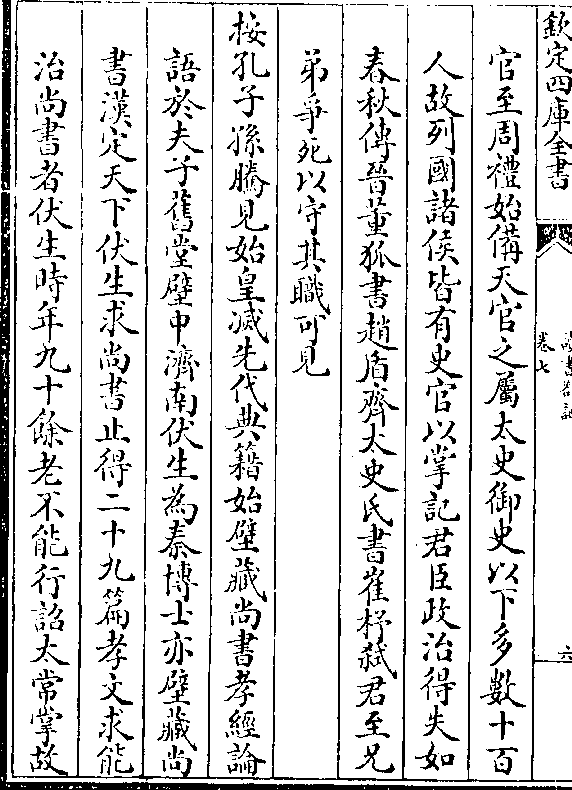 欽定四庫全書
卷七
六
官至周禮始備天官之屬太史御史以下多數十百
人故列國諸侯皆有史官以掌記君臣政治得失如
春秋傳晉董狐書趙盾齊太史氏書崔杼弑君至兄
弟爭死以守其職可見
按孔子孫騰見始皇滅先代典籍始壁藏尚書孝經論
語於夫子舊堂壁中濟南伏生為秦博士亦壁藏尚
書漢定天下伏生求尚書止得二十九篇孝文求能
治尚書者伏生時年九十餘老不能行詔太常掌故